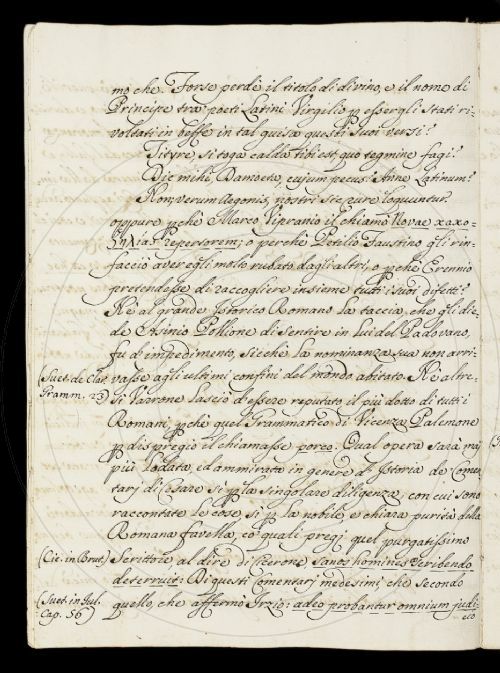 mo che. Forse perdè il titolo di divino, e il nome di
Principe tra' poeti Latini Virgilio ꝑ essergli stati ri-
voltati in beffe in tal guisa questi suoi versi?
Tityre, si toga calda tibi est, quo tegmine fagi?
Dic mihi, Damoeta, cujum pecus? Anne Latinum?
Non, verum Aegonis, nostri sic rure loquuntur.
oppure ꝑchè Marco Vipranio il chiamò Novae κακο-
ζηλίας repertorem; o perchè Petilio Faustino gli rin-
facciò aver egli molto rubato dagli altri, o ꝑchè Erennio
pretendesse di raccogliere insieme tutti i suoi difetti?
Nè al grande Istorico Romano la taccia, che gli die-
de Asinio Pollione di sentire in lui del Padovano,
fu d'impedimento, sicchè la nominanza sua non arri-
(Suet. de Clar. vasse agli ultimi confini del mondo abitato. Nè altre-
Gramm. 23) sì Varrone lasciò d'essere reputato il più dotto di tutti i
Romani, ꝑchè quel Grammatico di Vicenza Palemone
ꝑ dispregio il chiamasse porco. Qual opera sarà mai
più lodata, ed ammirata in genere d'Istoria de' Comen-
tarj di Cesare sì ꝑ la singolare diligenza, con cui sono
raccontate le cose, sì ꝑ la nobile, e chiara purità della
Romana favella, co' quali pregj quel purgatissimo
(Cic. in Brut.) Scrittore al dire di Cicerone sanos homines scribendo
deterruit: Di questi Comentarj medesimi, che secondo
(Suet. in Jul. quello, che affermò Irzio: adeo probantur omnium judi-
Cap. 56) cio